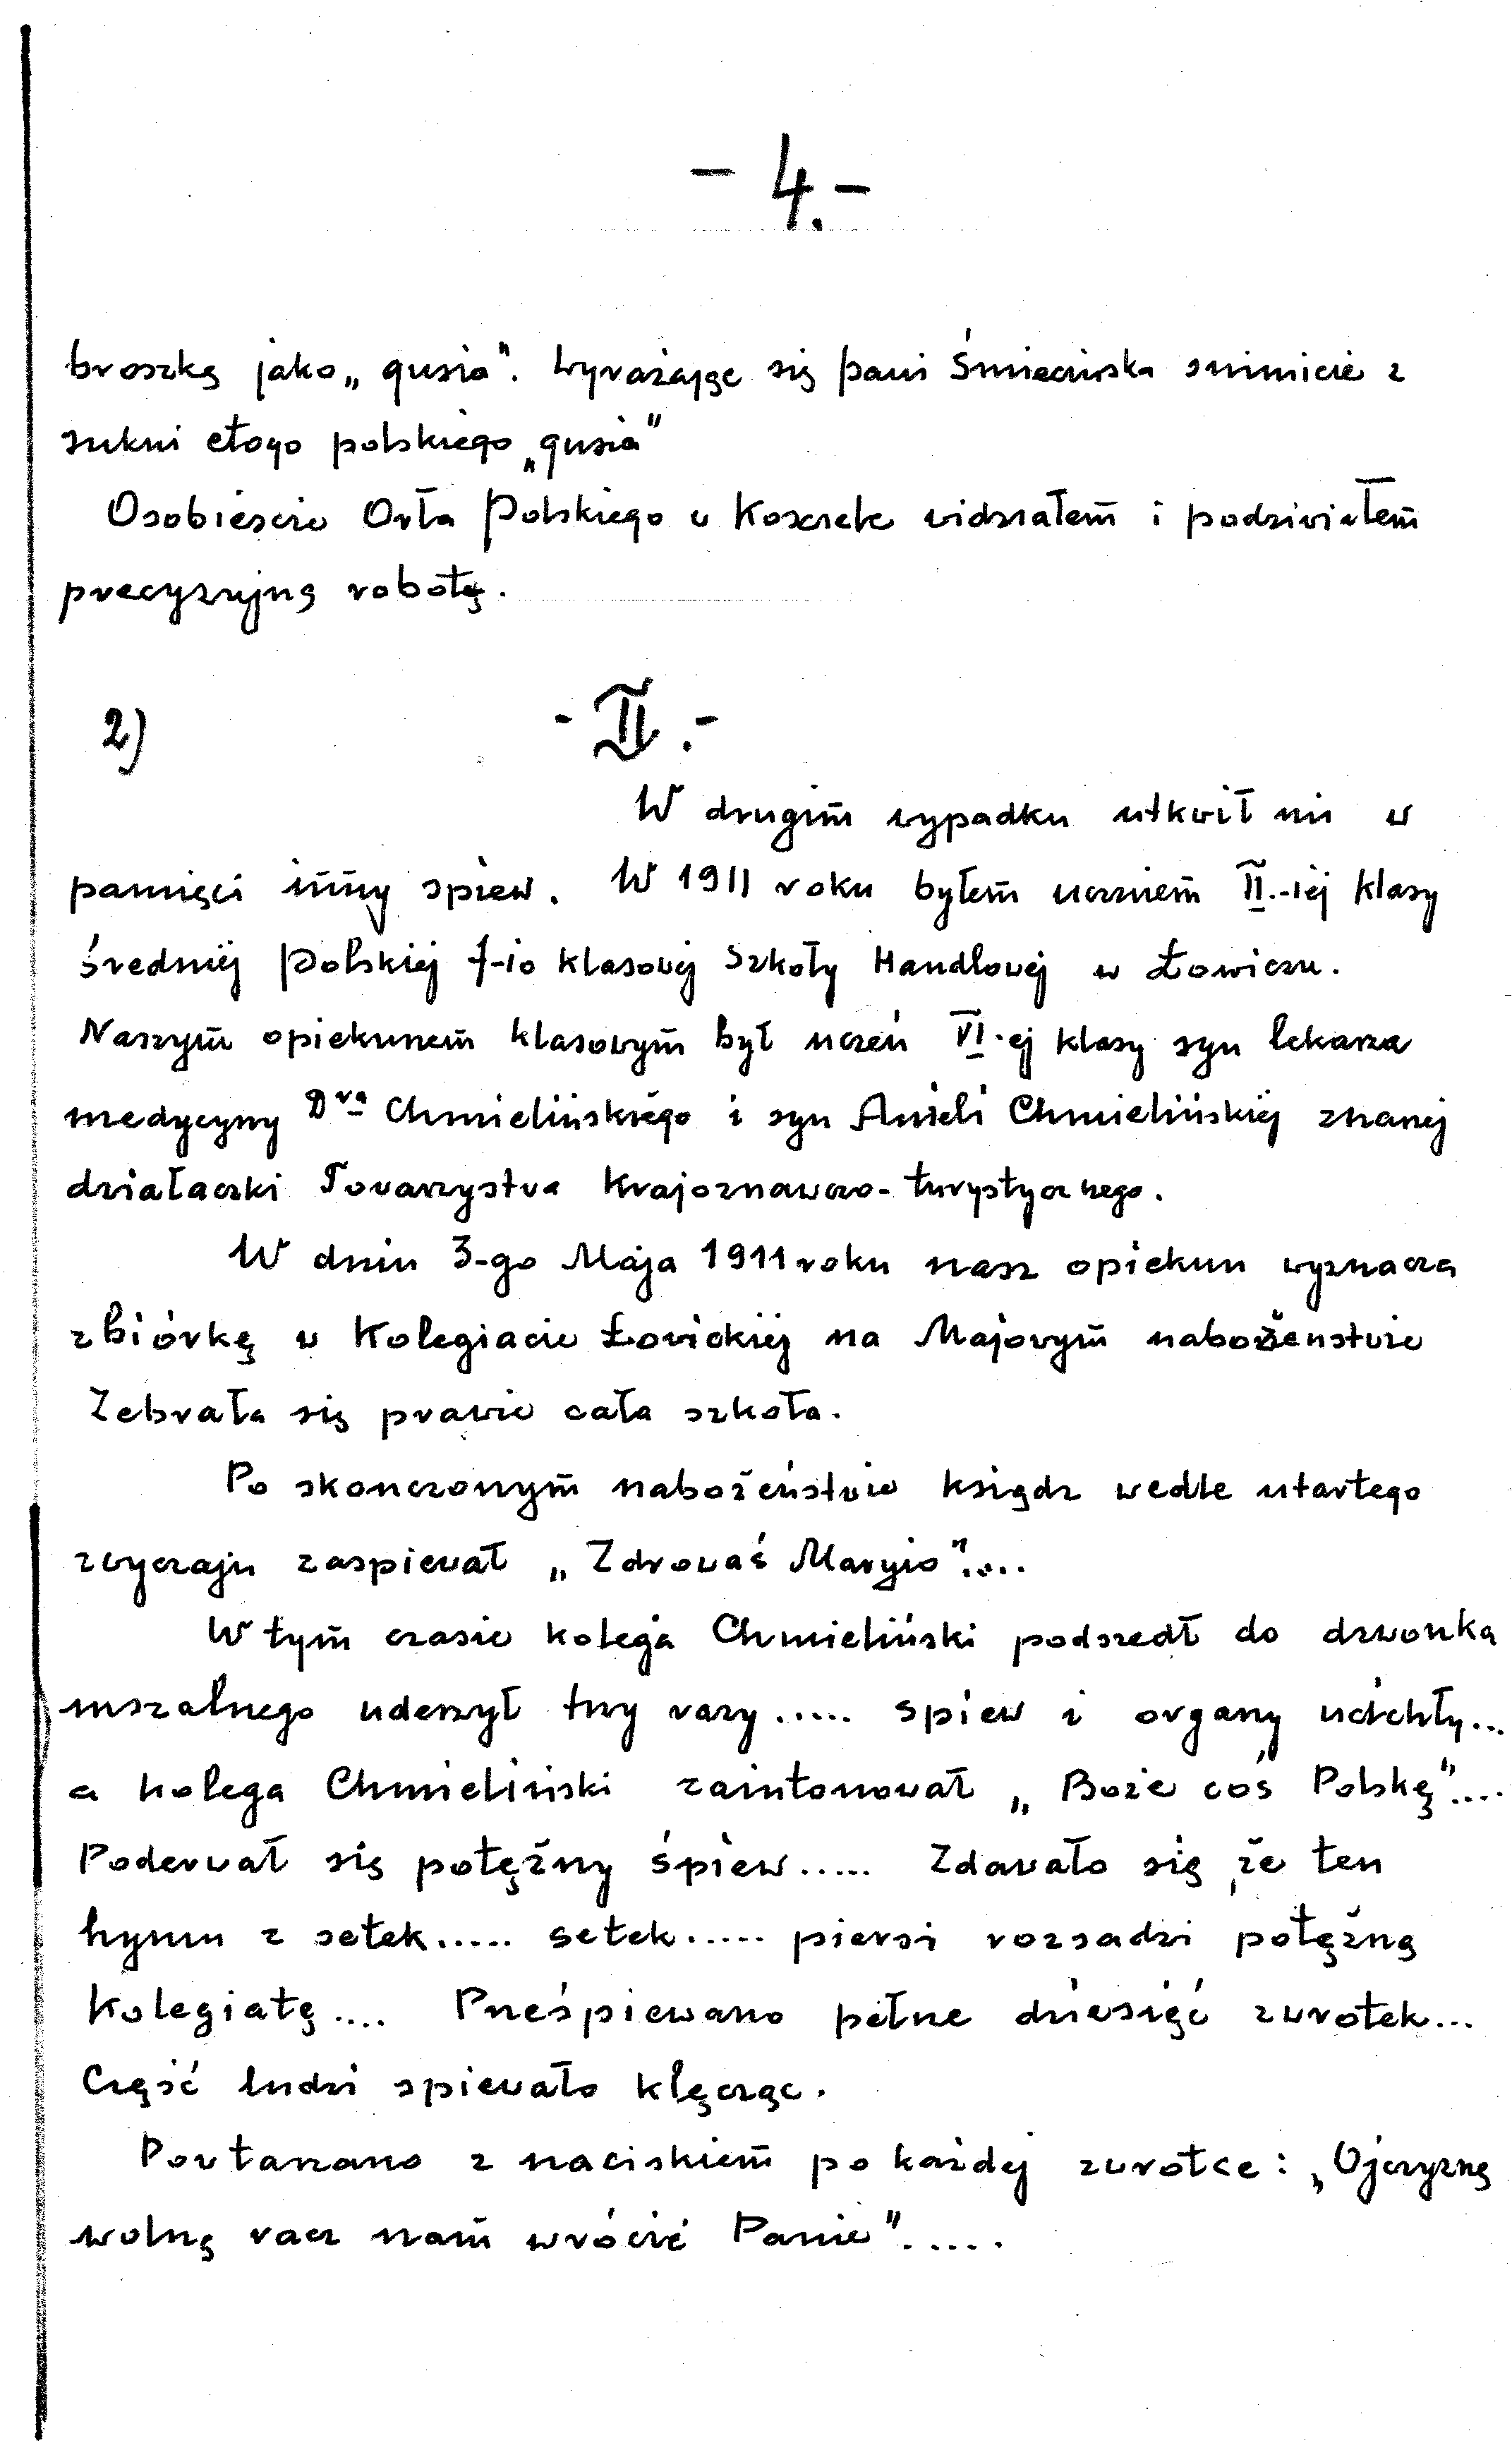 - 4.-
broszką jako „gusia”. Wyrażając się pani Śmiecińska snimicie z
sukni etogo polskiego „gusia”
Osobiescie Orła Polskiego w Koszełe widziałem i podziwiałem
precyzyjną robotę.
2) - II.-
W drugim wypadku utkwił mi w
pamięci inny spiew. W 1911 roku byłem uczniem II.-iej klasy
średniej Polskiej 7-io klasowej Szkoły Handlowej w Łowiczu.
Naszym opiekunem klasowym był uczeń VI.ej klasy syn lekarza
medycyny Dra Chmielińskiego i syn Anieli Chmielińskiej znanej
działaczki Towarzystwa Krajoznawczo-turystycznego.
W dniu 3-go Maja 1911 roku nasz opiekun wyznacza
zbiórkę w Kolegiacie Łowickiej na Majowym nabożenstwie
Zebrała się prawie cała szkoła.
Po skonczonym nabożeństwie ksiądz wedle utartego
zwyczaju zaspiewał „Zdrowaś Maryio”....
W tym czasie kolega Chmieliński podszedł do dzwonka
mszalnego uderzył trzy razy..... spiew i organy ucichły...
a kolega Chmieliński zaintonował „Boże coś Polskę”....
Poderwał się potężny śpiew..... Zdawało się, że ten
hymn z setek..... setek..... piersi rozsadzi potężną
Kolegiatę.... Prześpiewano pełne dziesięć zwrotek...
Część ludzi spiewało klęcząc.
Powtarzano z naciskiem po każdej zwrotce: „Ojczyznę
wolną racz nam wrócić Panie”.....